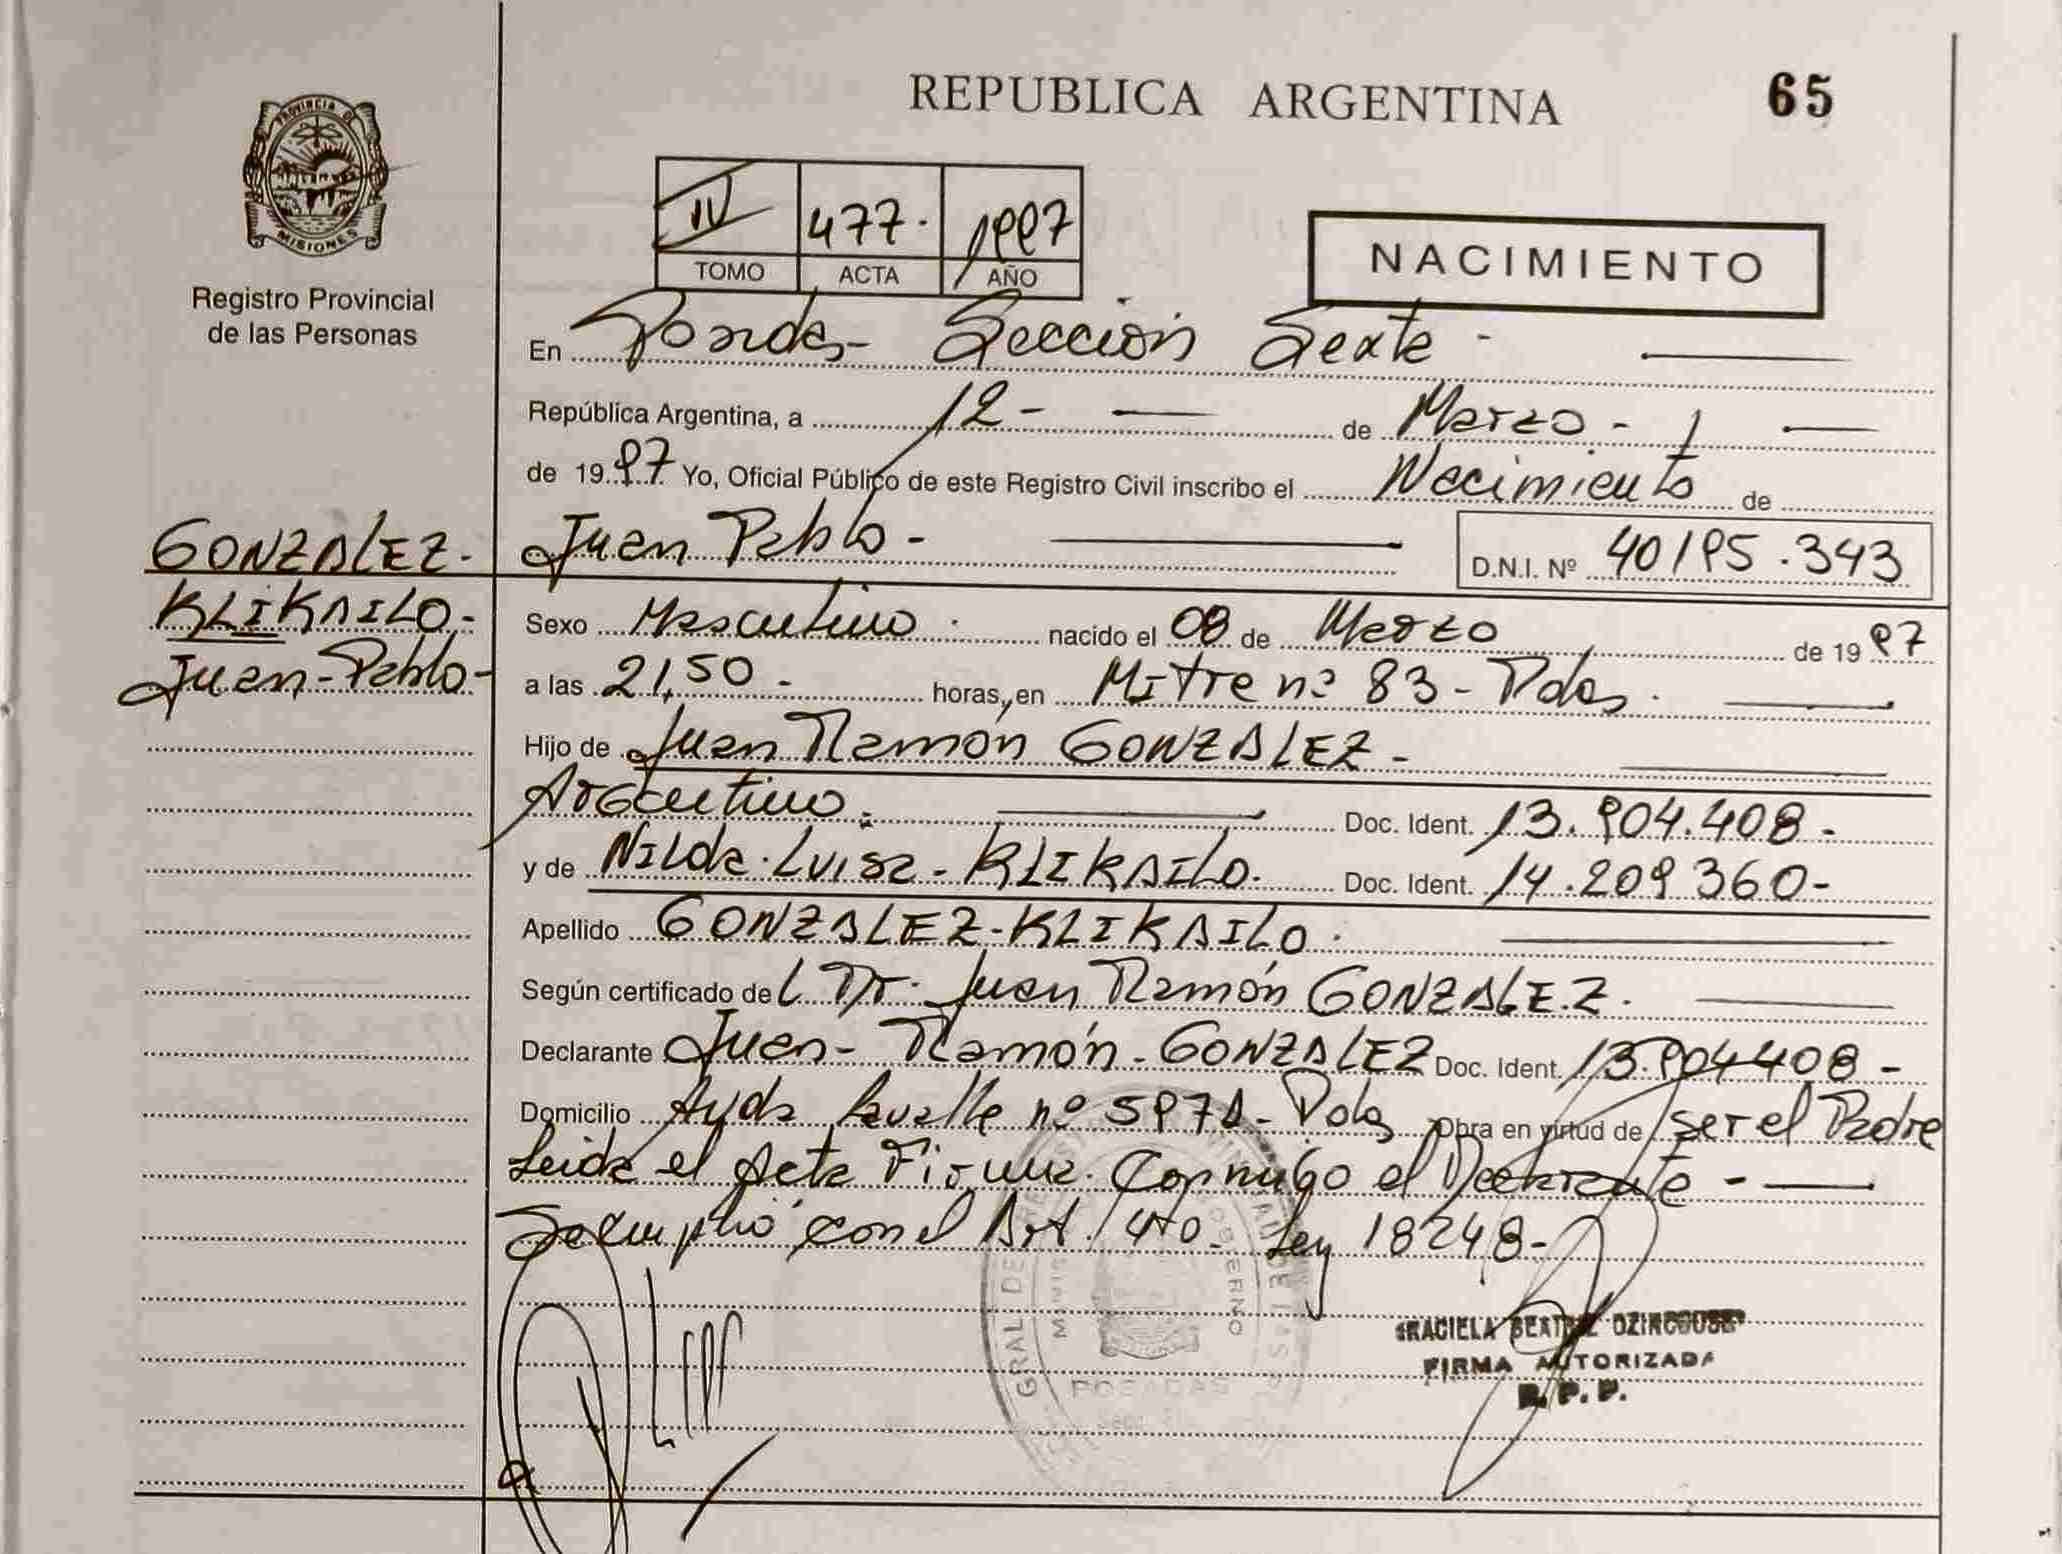 REPUBLICA ARGENTINA
65
PROVINCIA DE
MISIONES
Registro Provincial
de las Personas
IV 477. 1997
TOMO ACTA AÑO
NACIMIENTO
En Posadas- Sección Sexta -
República Argentina, a 12- de Marzo -
de 1997 Yo, Oficial Público de este Registro Civil inscribo el Nacimiento de
GONZALEZ- Juan Pablo - D.N.I. Nº 40195.343
KLIKAILO- Sexo Masculino. nacido el 08 de Marzo de 1997
Juan-Pablo- a las 21,50 - horas, en Mitre nº 83 - Pdas.
Hijo de Juan Ramón GONZALEZ -
Argentino. Doc. Ident. 13.904.408-
y de Nilda Luisa - KLIKAILO. Doc. Ident. 14.209360-
Apellido GONZALEZ-KLIKAILO.
Según certificado del Dr. Juan Ramón GONZALEZ.
Declarante Juan- Ramón-GONZALEZ Doc. Ident. 13.904408-
Domicilio Avda Lavalle nº 597 - Pdas Obra en virtud de ser el Padre
Leida el Acta Firma Conmigo el Declarante -
Se cumplió con el Art. 4to. Ley 18248-
GRAL DE
GOBIERNO
POSADAS
GRACIELA BEATRIZ
FIRMA AUTORIZADA
R.P.P.